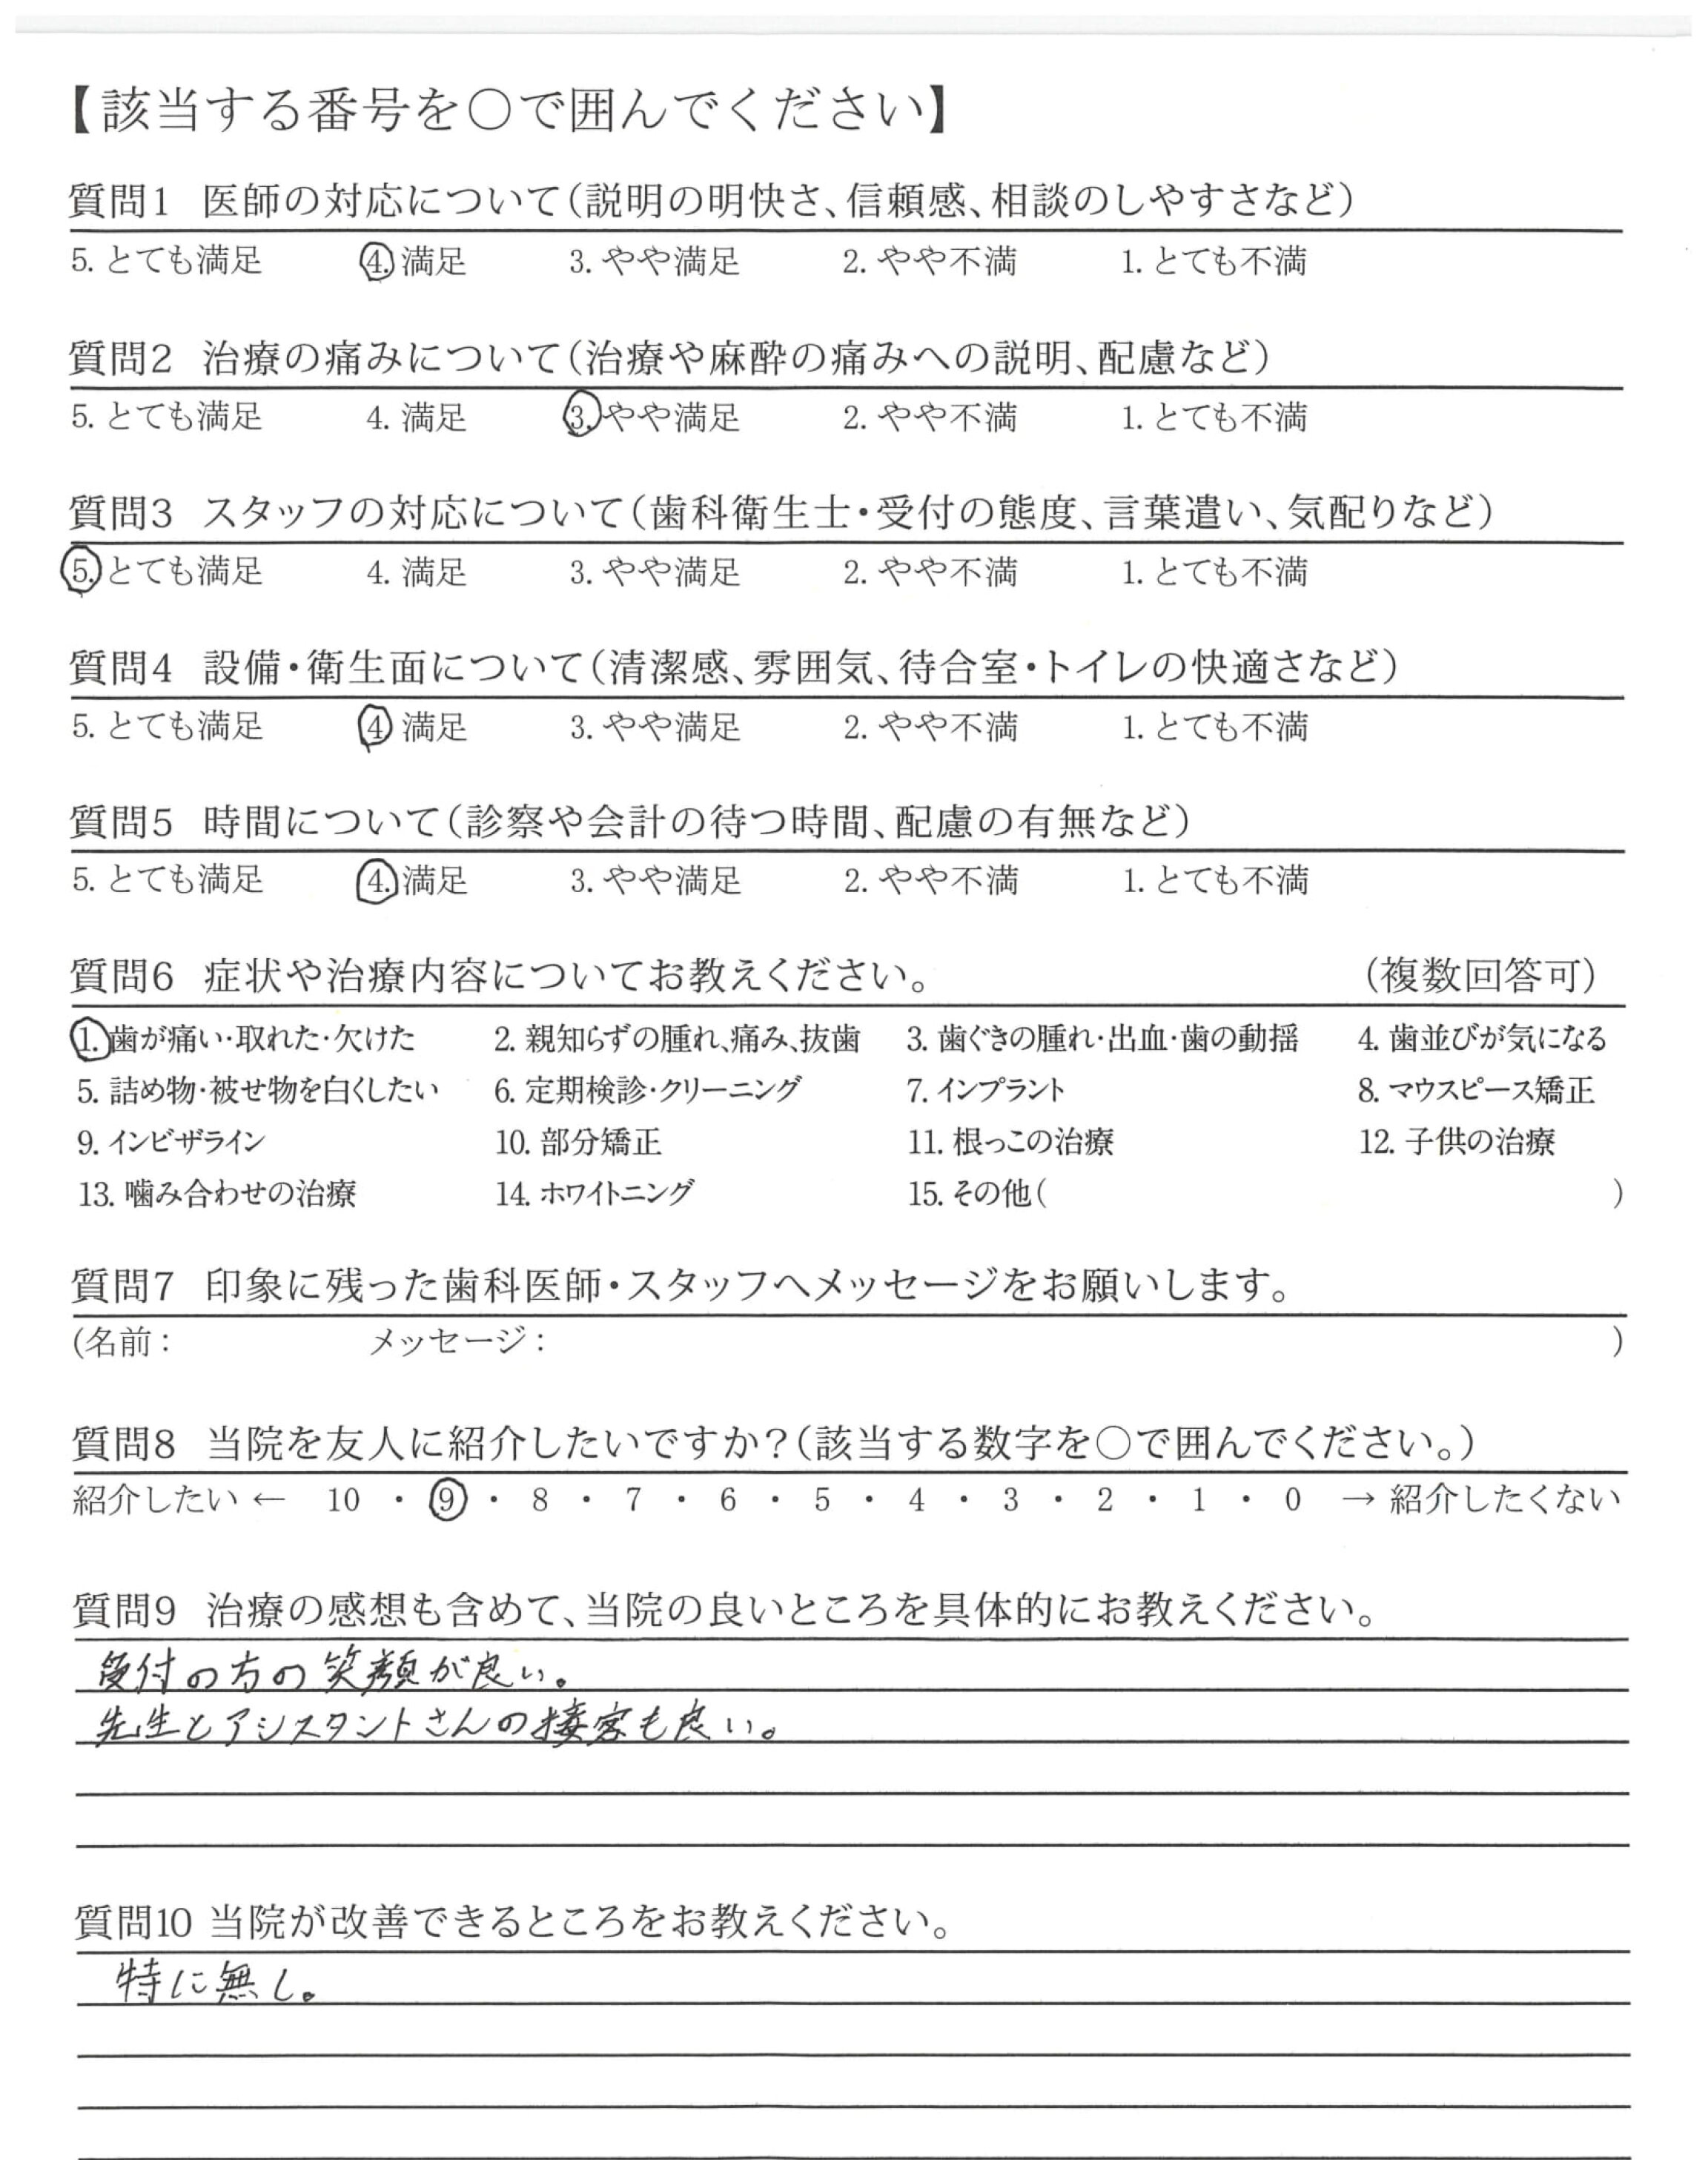 【該当する番号を○で囲んでください】
質問1 医師の対応について(説明の明快さ、信頼感、相談のしやすさなど)
5. とても満足 4. 満足 3. やや満足 2. やや不満 1. とても不満
質問2 治療の痛みについて(治療や麻酔の痛みへの説明、配慮など)
5. とても満足 4. 満足 3. やや満足 2. やや不満 1. とても不満
質問3 スタッフの対応について(歯科衛生士・受付の態度、言葉遣い、気配りなど)
5. とても満足 4. 満足 3. やや満足 2. やや不満 1. とても不満
質問4 設備・衛生面について(清潔感、雰囲気、待合室・トイレの快適さなど)
5. とても満足 4 満足 3. やや満足 2. やや不満 1. とても不満
質問5 時間について(診察や会計の待つ時間、配慮の有無など)
5. とても満足 4. 満足 3. やや満足 2. やや不満 1. とても不満
質問6 症状や治療内容についてお教えください。 (複数回答可)
1. 歯が痛い・取れた・欠けた 2. 親知らずの腫れ、痛み、抜歯 3. 歯ぐきの腫れ・出血・歯の動揺 4. 歯並びが気になる
5. 詰め物・被せ物を白くしたい 6. 定期検診・クリーニング 7. インプラント 8. マウスピース矯正
9. インビザライン 10. 部分矯正 11. 根っこの治療 12. 子供の治療
13. 噛み合わせの治療 14. ホワイトニング 15. その他( )
質問7 印象に残った歯科医師・スタッフへメッセージをお願いします。
(名前: メッセージ: )
質問8 当院を友人に紹介したいですか?(該当する数字を○で囲んでください。)
紹介したい ← 10 ・ 9 ・ 8 ・ 7 ・ 6 ・ 5 ・ 4 ・ 3 ・ 2 ・ 1 ・ 0 → 紹介したくない
質問9 治療の感想も含めて、当院の良いところを具体的にお教えください。
受付の方の笑顔が良い。
先生とアシスタントさんの接客も良い。
質問10 当院が改善できるところをお教えください。
特に無し。